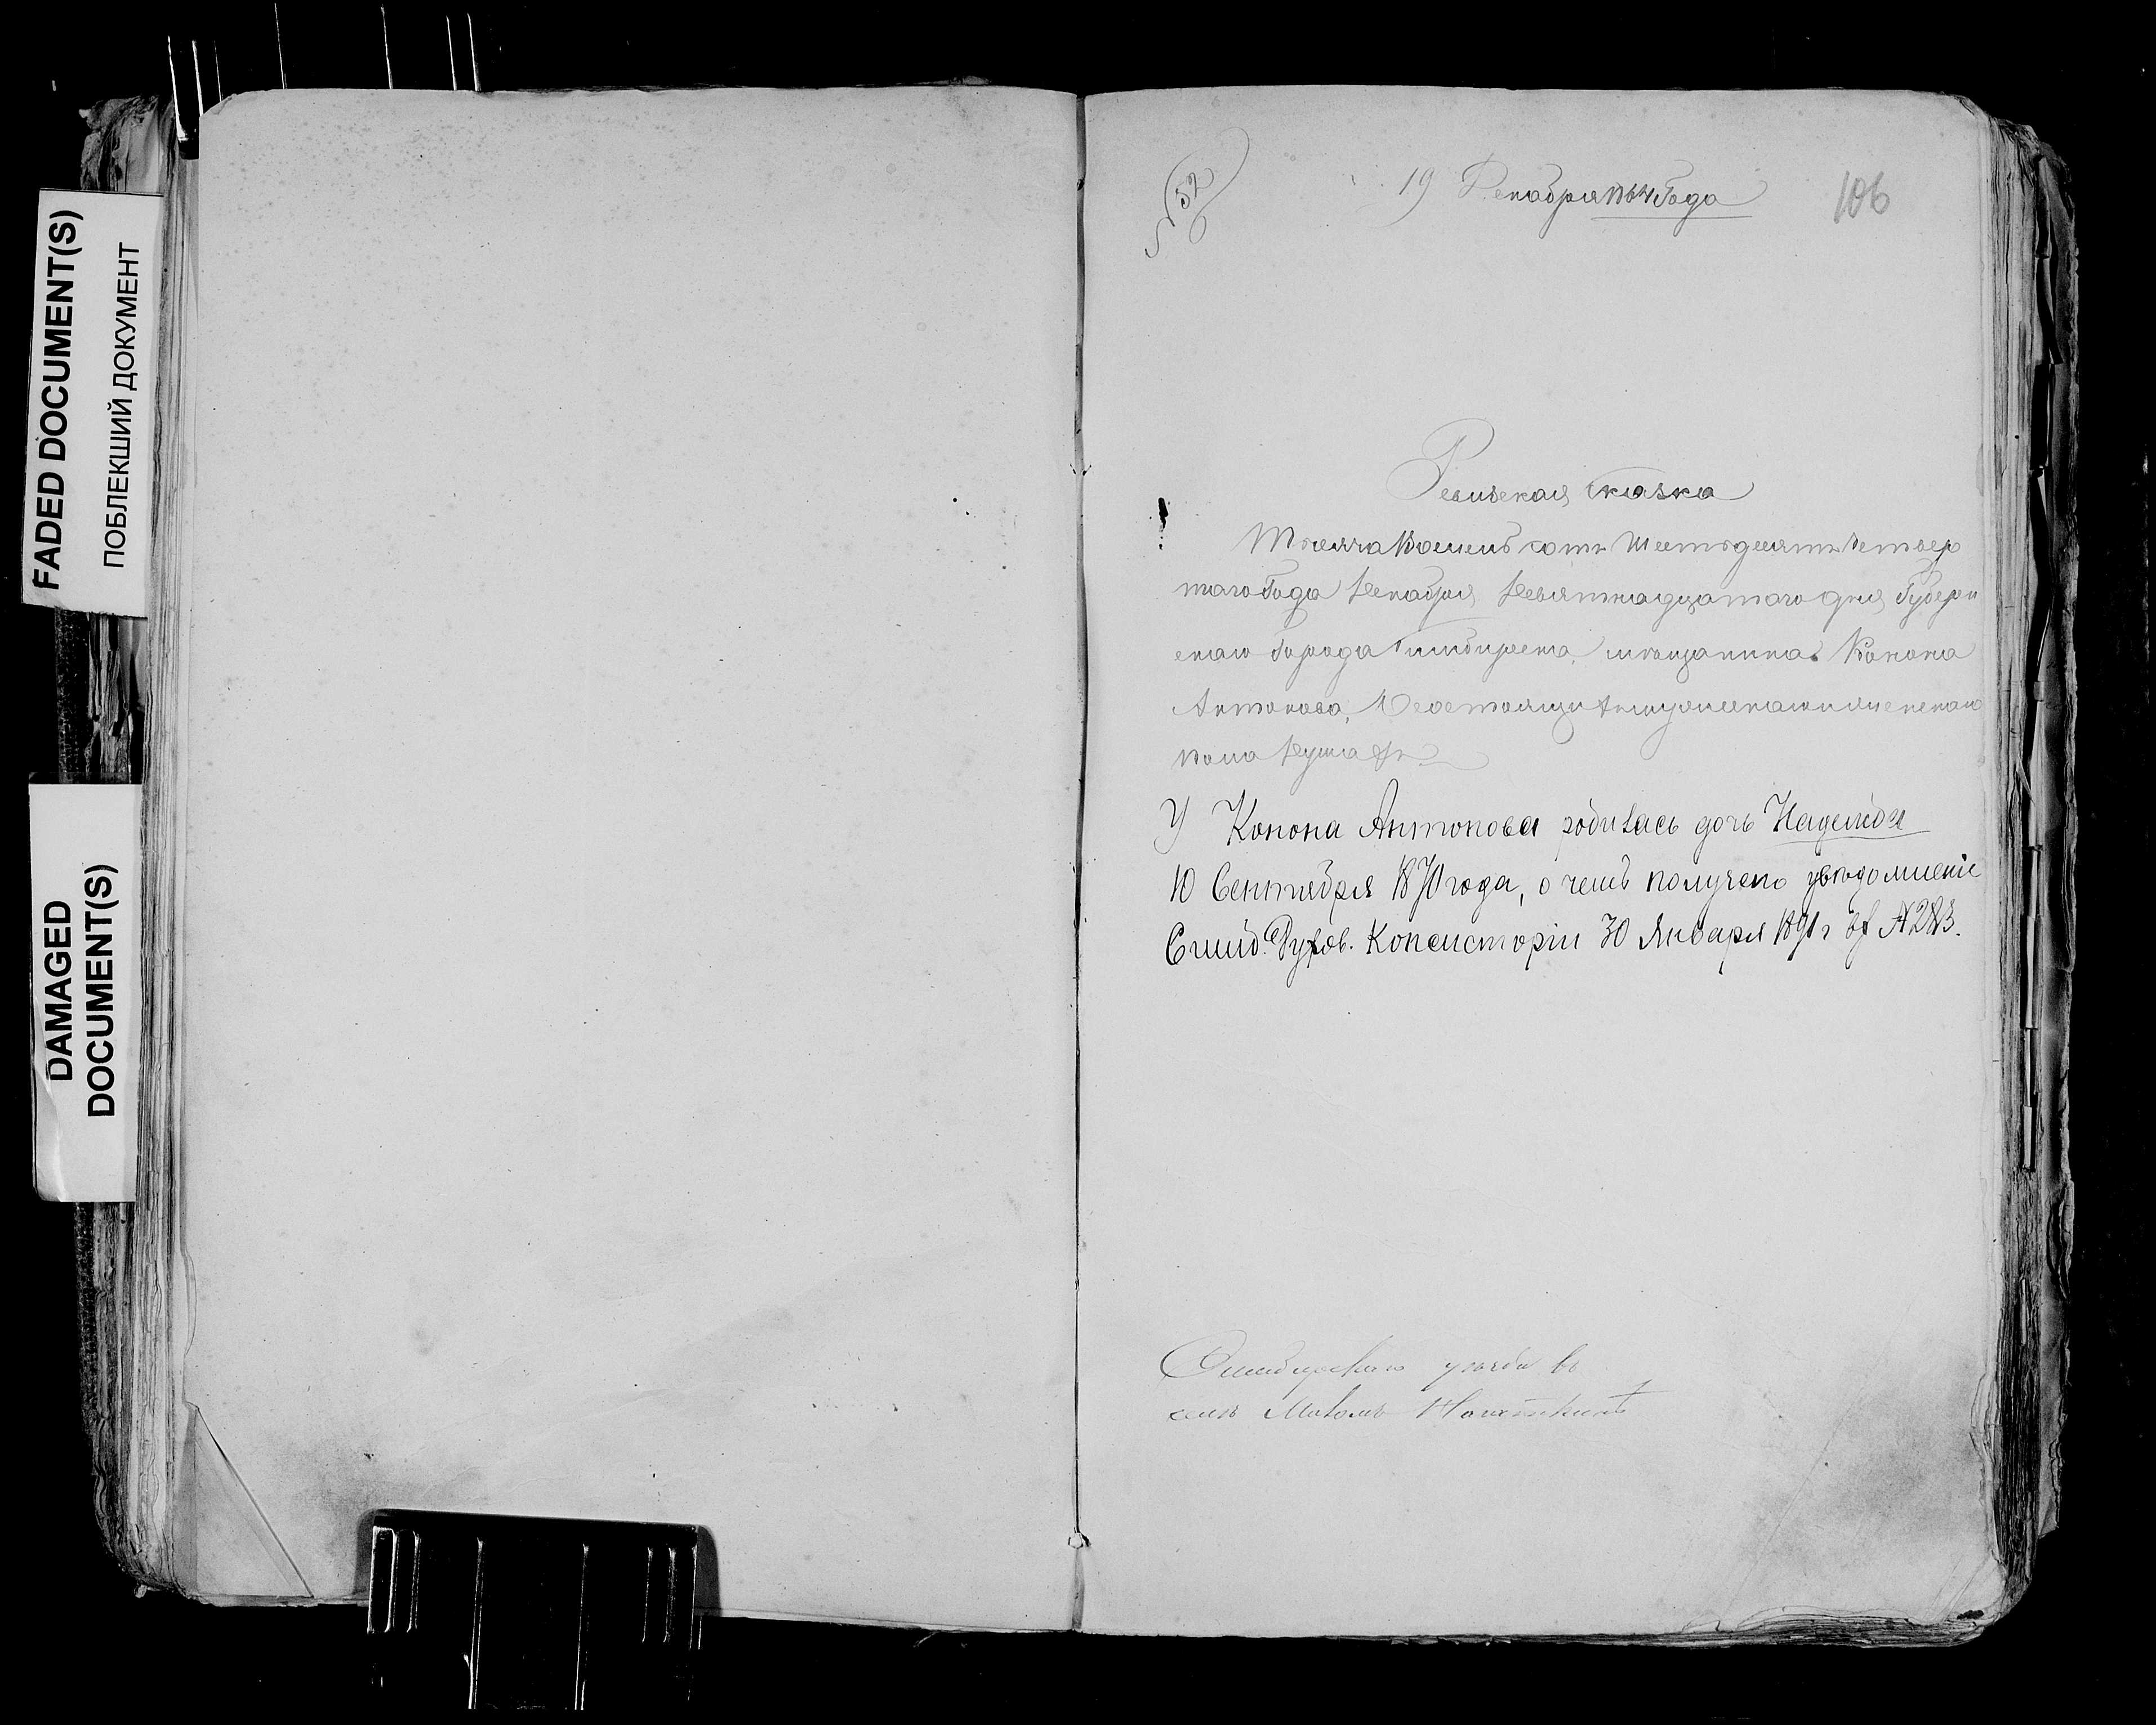 FADED DOCUMENT(S)
ПОБЛЕКШИЙ ДОКУМЕНТ
DAMAGED
DOCUMENT(S)
№ 52
19 Декабря 1864 Года
106
Ревизская сказка
Тысяча Восемь сотъ Шестьдесятъ Четвер
таго Года Декабря Девятнадцатаго дня Губерн
скаго Города Симбирска, мѣщанина Конона
Антонова, Состоящи
пола душах
У Конона Антонова родилась дочь Надежда
10 Сентября 1870 года, о чемъ получено увѣдомленіе
Симб. Духов. Консисторіи 30 Января 1891 г за №
Симбирскаго уѣзда въ
селѣ